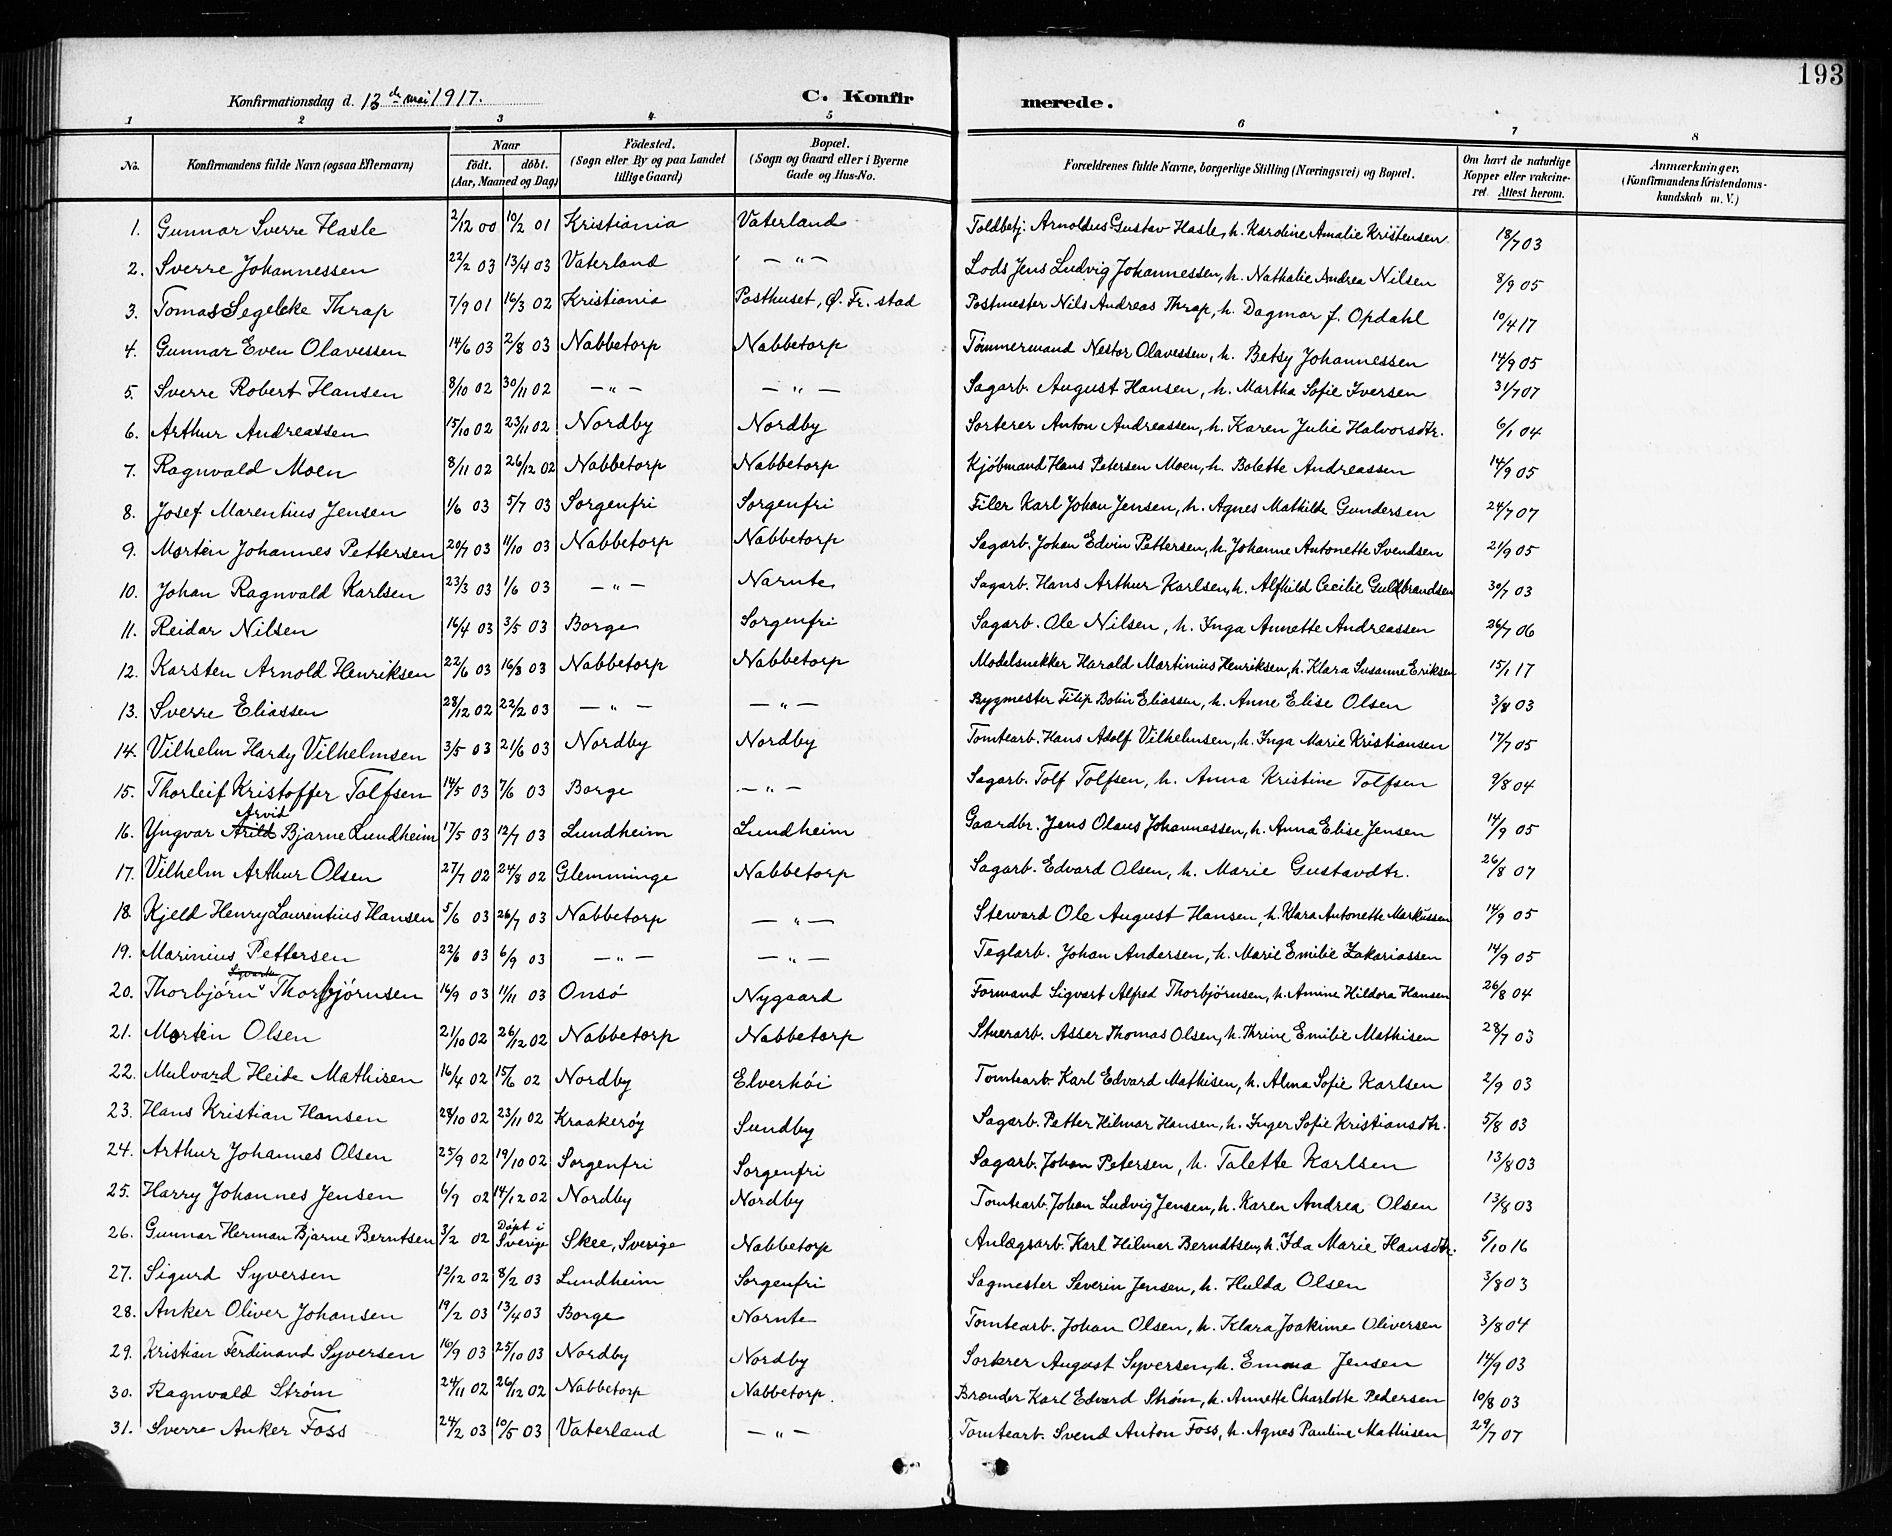 193
Konfirmationsdag d. 13de mai 1917. C. Konfirmerede.
1 2 3 4 5 6 7 8
No. Konfirmandens fulde Navn (ogsaa Efternavn) Naar født. døbt. (Aar, Maaned og Dag) Fødested. (Sogn eller By og paa Landet tillige Gaard) Bopæl. (Sogn og Gaard eller i Byerne Gade og Hus-No. Forældrenes fulde Navne, borgerlige Stilling (Næringsvei) og Bopæl. Om havt de naturlige Kopper eller vakcineret. Attest herom. Anmærkninger. (Konfirmandens Kristendomskundskab m. V.)
1. Gunnar Sverre Hasle 2/12 00 10/2 01 Kristiania Vaterland Toldbetj. Arnoldus Gustav Hasle, h. Karoline Amalie Kristensen 18/7 03
2. Sverre Johannessen 22/2 03 13/4 03 Vaterland — " — Lods Jens Ludvig Johannessen, h. Nathalie Andrea Nilsen 8/9 05
3. Tomas Segelcke Thrap 7/9 01 16/3 02 Kristiania Posthuset, Ø. Fr. stad Postmester Nils Andreas Thrap, h. Dagmar f. Opdahl 10/4 17
4. Gunnar Even Olavessen 14/6 03 2/8 03 Nabbetorp Nabbetorp Tømmermand Nestor Olavessen, h. Betsy Johannessen 14/9 05
5. Sverre Robert Hansen 8/10 02 30/11 02 — " — — " — Sagarb. August Hansen, h. Martha Sofie Iversen 31/7 07
6. Arthur Andreassen 15/10 02 23/11 02 Nordby Nordby Sorterer Anton Andreassen, h. Karen Julie Halvorsdtr. 6/1 04
7. Ragnvald Moen 8/11 02 26/12 02 Nabbetorp Nabbetorp Kjøbmand Hans Petersen Moen, h. Bolette Andreassen 14/9 05
8. Josef Marentius Jensen 1/6 03 5/7 03 Sorgenfri Sorgenfri Filer Karl Johan Jensen, h. Agnes Mathilde Gundersen 24/7 07
9. Morten Johannes Pettersen 20/7 03 11/10 03 Nabbetorp Nabbetorp Sagarb. Johan Edvin Pettersen, h. Johanne Antonette Svendsen 21/9 05
10. Johan Ragnvald Karlsen 23/3 03 1/6 03 — " — Narnte Sagarb. Hans Arthur Karlsen, h. Alfhild Cecilie Guldbrandsen 30/7 03
11. Reidar Nilsen 16/4 03 3/5 03 Borge Sorgenfri Sagarb. Ole Nilsen, h. Inga Annette Andreassen 26/7 06
12. Karsten Arnold Henriksen 22/6 03 16/8 03 Nabbetorp Nabbetorp Modelsnekker Harald Martinius Henriksen, h. Klara Susanne Eriksen 15/1 17
13. Sverre Eliassen 28/12 02 22/2 03 — " — — " — Bygmester Filip Bolin Eliassen, h. Anne Elise Olsen 3/8 03
14. Vilhelm Hardy Vilhelmsen 3/5 03 21/6 03 Nordby Nordby Tomtearb. Hans Adolf Vilhelmsen, h. Inga Marie Kristiansen 17/7 05
15. Thorleif Kristoffer Tolfsen 14/5 03 7/6 03 Borge — " — Sagarb. Tolf Tolfsen, h. Anna Kristine Tolfsen 9/8 04
Arvid
16. Yngvar Arild Bjarne Lundheim 17/5 03 12/7 03 Lundheim Lundheim Gaardbr. Jens Olaus Johannessen, h. Anna Elise Jensen 14/9 05
17. Vilhelm Arthur Olsen 27/7 02 24/8 02 Glemminge Nabbetorp Sagarb. Edvard Olsen, h. Marie Gustavdtr. 26/8 07
18. Kjeld Henry Laurentius Hansen 5/6 03 26/7 03 Nabbetorp — " — Steward Ole August Hansen, h. Klara Antonette Markussen 14/9 05
19. Marinius Pettersen 22/6 03 6/9 03 — " — — " — Teglarb. Johan Andersen, h. Marie Emilie Zakariassen 14/9 05
20. Thorbjørn Thorbjørnsen 16/9 03 11/11 03 Onsø Nygaard Formand Sigvart Alfred Thorbjørnsen, h. Amine Hildora Hansen 26/8 04
21. Morten Olsen 21/10 02 26/12 02 Nabbetorp Nabbetorp Stuerarb. Asser Thomas Olsen, h. Thrine Emilie Mathisen 28/7 03
22. Mulvard Heide Mathisen 16/4 02 15/6 02 Nordby Elverhøi Tomtearb. Karl Edvard Mathisen, h. Alma Sofie Karlsen 2/9 03
23. Hans Kristian Hansen 28/10 02 23/11 02 Kraakerøy Sundby Sagarb. Petter Hilmar Hansen, h. Inger Sofie Kristiansdtr. 5/8 03
24. Arthur Johannes Olsen 25/9 02 19/10 02 Sorgenfri Sorgenfri Sagarb. Johan Petersen, h. Talette Karlsen 13/8 03
25. Harry Johannes Jensen 6/9 02 14/12 02 Nordby Nordby Tomtearb. Johan Ludvig Jensen, h. Karen Andrea Olsen 13/8 03
26. Gunnar Herman Bjarne Berntsen 3/2 02 Døpt i Sverige Skee, Sverige Nabbetorp Anlægsarb. Karl Hilmer Berndtsen, h. Ida Marie Hansdtr. 5/10 16
27. Sigurd Syversen 12/12 02 8/2 03 Lundheim Sorgenfri Sagmester Severin Jensen, h. Hulda Olsen 3/8 03
28. Anker Oliver Johansen 19/2 03 13/4 03 Borge Narnte Tomtearb. Johan Olsen, h. Klara Joakime Oliversen 3/8 04
29. Kristian Ferdinand Syversen 16/9 03 25/10 03 Nordby Nordby Sorterer August Syversen, h. Emma Jensen 14/9 03
30. Ragnvald Strøm 24/11 02 26/12 02 Nabbetorp Nabbetorp. Brænder Karl Edvard Strøm, h. Annette Charlotte Pedersen 10/8 03
31. Sverre Anker Foss 24/2 03 10/5 03 Vaterland — " — Tomtearb. Svend Anton Foss, h. Agnes Pauline Mathisen 29/7 07